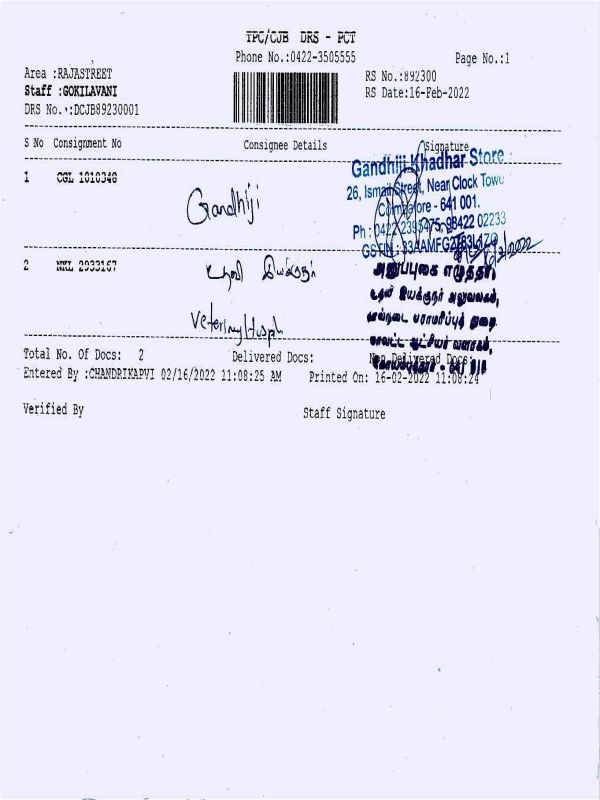 TPC/CJB DRS - PCT
Phone No.:0422-3505555
Page No.:1
Area :RAJASTREET
RS No.:892300
Staff :GOKILAVANI
RS Date:16-Feb-2022
DRS No. :DCJB89230001
S No Consignment No Consignee Details Signature
Gandhiji Khadhar Store
1 CGL 1010348
26, Ismail Street, Near Clock Tower
Gandhiji
Coimbatore - 641 001.
Ph : 0422 98422 02233
GSTIN :
2 NKL 2933167
உதவி இயக்குநர்
உதவி இயக்குநர் அலுவலகம்,
கால்நடை பராமரிப்புத் துறை
மாவட்ட ஆட்சியர் வளாகம்,
Total No. Of Docs: 2 Delivered Docs: Non Delivered Docs:
Entered By :CHANDRIKAPVI 02/16/2022 11:08:25 AM Printed On: 16-02-2022 11:08:24
Verified By Staff Signature